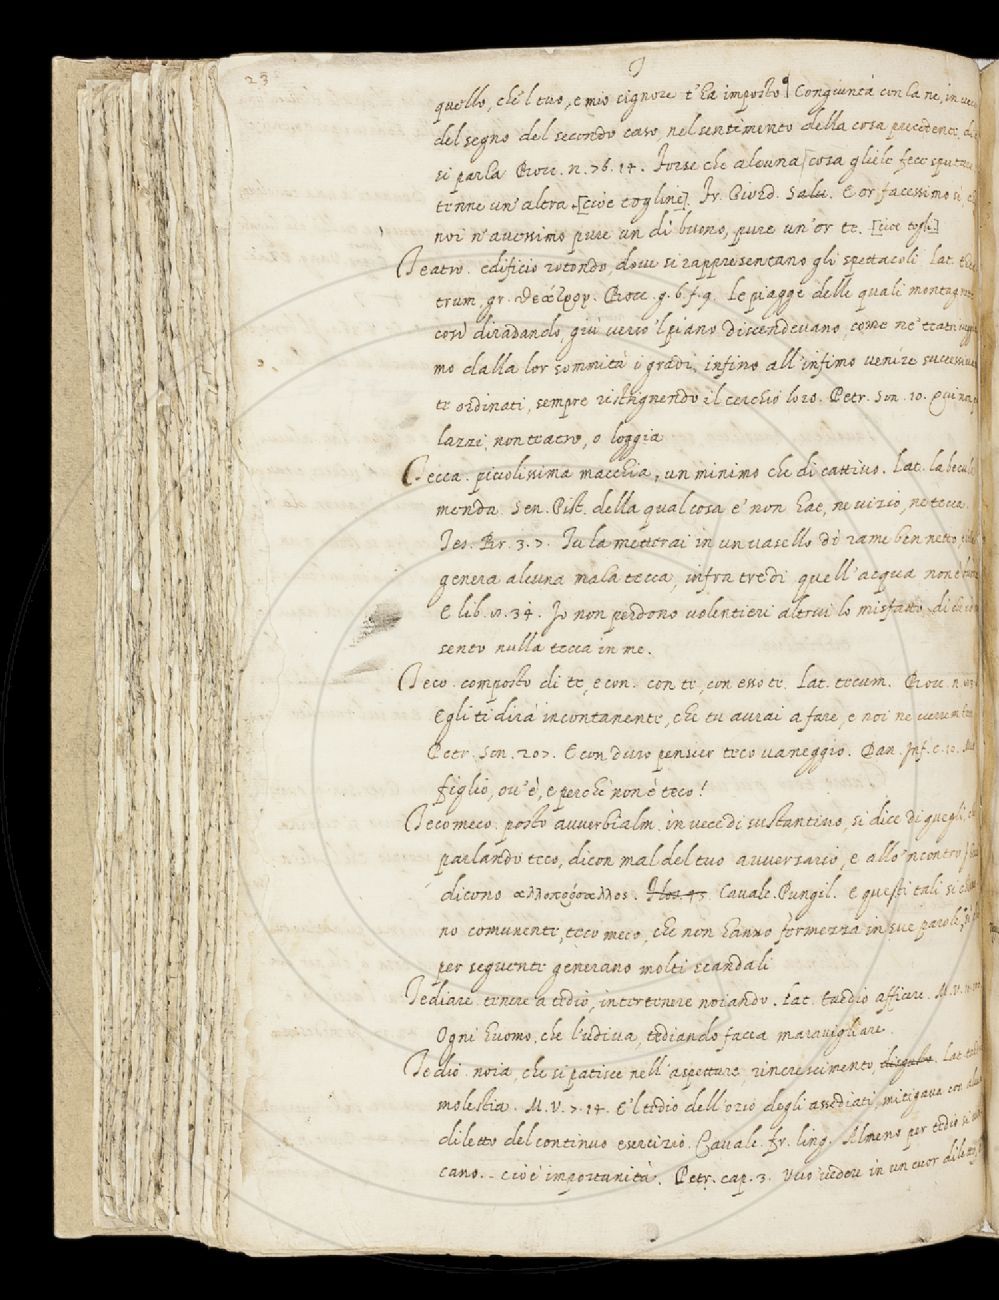 23
T
quello, che 'l tuo, e mio signore t'ha imposto. Congiunta con la ne, in vece
del segno del secondo caso, nel sentimento della cosa precedente, di
si parla Bocc. n. 76. 14. Forse che alcuna cosa gliele fece sputare
tenne un'altra [cioè togline]. Fr. Giord. Salv. E or facessimo sì,
noi n'avessimo pure un dì buono, pure un'or te. [cioe togli]
Teatro. edificio rotondo, dove si rappresentano gli spettacoli Lat.
trum, gr. θέατρον. Bocc. g. 6. f. 9. Le piagge delle quali montagnette
così diradando, giù verso 'l piano discendevano, come ne' teatri
mo dalla lor sommità i gradi, infino all'infimo venire
te ordinati, sempre ristrignendo il cerchio loro. Petr. Son. 10. Qui non
lazzi, non teatro, o loggia
Tecca. piccolissima macchia, un minimo che di cattivo. Lat. labecula
menda. Sen. Pist. della qual cosa e' non hae, ne vizio, ne tecca.
Tes. Br. 3. 7. Tu la metterai in un vasello di rame ben netto,
genera alcuna mala tecca, infra tre dì quell'acqua non è
E lib. 34. Io non perdono volentieri altrui lo misfatto, di
sento nulla tecca in me.
Teco. composto di te, e con. con te, con esso te. Lat. tecum. Bocc. n.
Egli ti dirà incontanente, che tu aurai a fare, e noi ne verremo
Petr. Son. 207. E con duro pensier teco vaneggio. Dan. Inf. c. 10. Mio
figlio, ov'è, e perchè non è teco!
Tecomeco. posto avverbialm. in vece di sustantivo, si dice di quegli,
parlando teco, dicon mal del tuo avversario, e allo 'ncontro
dicono αλλοπρόσαλλος. Cavalc. Pungil. E questi tali si
no comunente, teco meco, che non hanno fermezza in sue parole,
per seguente generano molti scandali
Tediare. tenere a tedio, intertenere noiando. Lat. taedio afficere. M. V.
Ogni huomo, che l'udiva, tediando facea maravigliare.
Tedio. noia, che si patisce nell'aspettare, rincrescimento, Lat.
molestia. M. V. 7. 14. E 'l tedio dell'ozio degli assediati, mitigava con
diletto del continuo esercizio. Cavalc. fr. ling. Almeno per tedio si
cano. - cioè importunità. Petr. cap. 3. Vivo vedon in un cuor diletto,